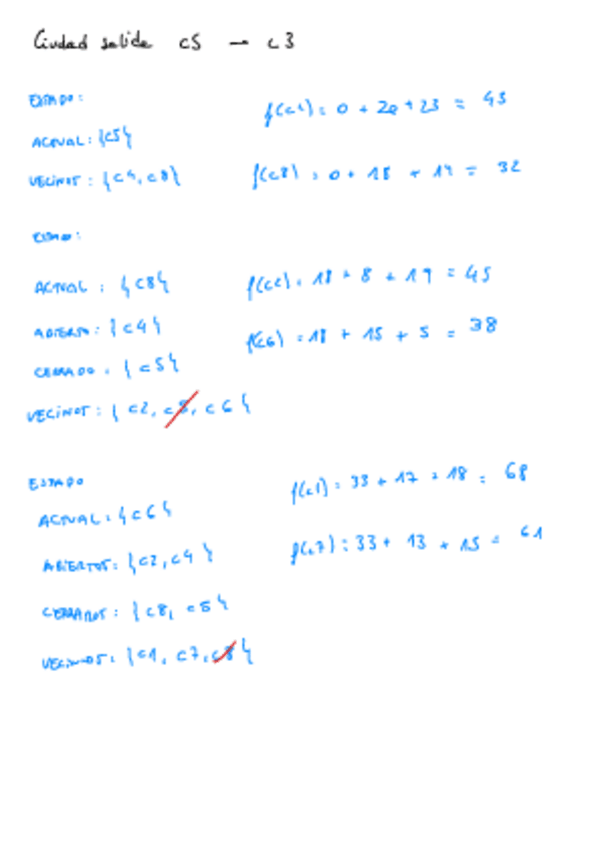 Ciudad salida c5 — c3
ESTADO:
f(c4): 0 + 20 + 23 = 43
ACTUAL: {c5}
VECINOS: {c4, c8}
f(c8): 0 + 18 + 14 = 32
ESTADO:
ACTUAL: {c8}
f(c2): 18 + 8 + 19 = 45
ABIERTO: {c4}
f(c6): 18 + 15 + 5 = 38
CERRADO: {c5}
VECINOS: {c2, c5, c6}
ESTADO
f(c1): 33 + 17 + 18 = 68
ACTUAL: {c6}
f(c7): 33 + 13 + 15 = 61
ABIERTOS: {c2, c4}
CERRADOS: {c8, c5}
VECINOS: {c1, c7, c8}